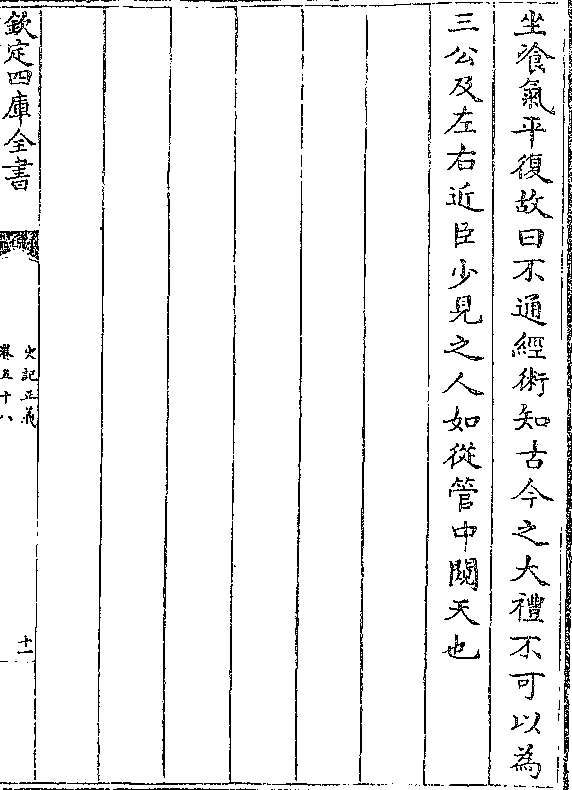 坐飡氣平復故曰不通經術知古今之大禮不可以為
三公及左右近臣少見之人如從管中闚天也
欽定四庫全書
史記正義
卷五十八
十一